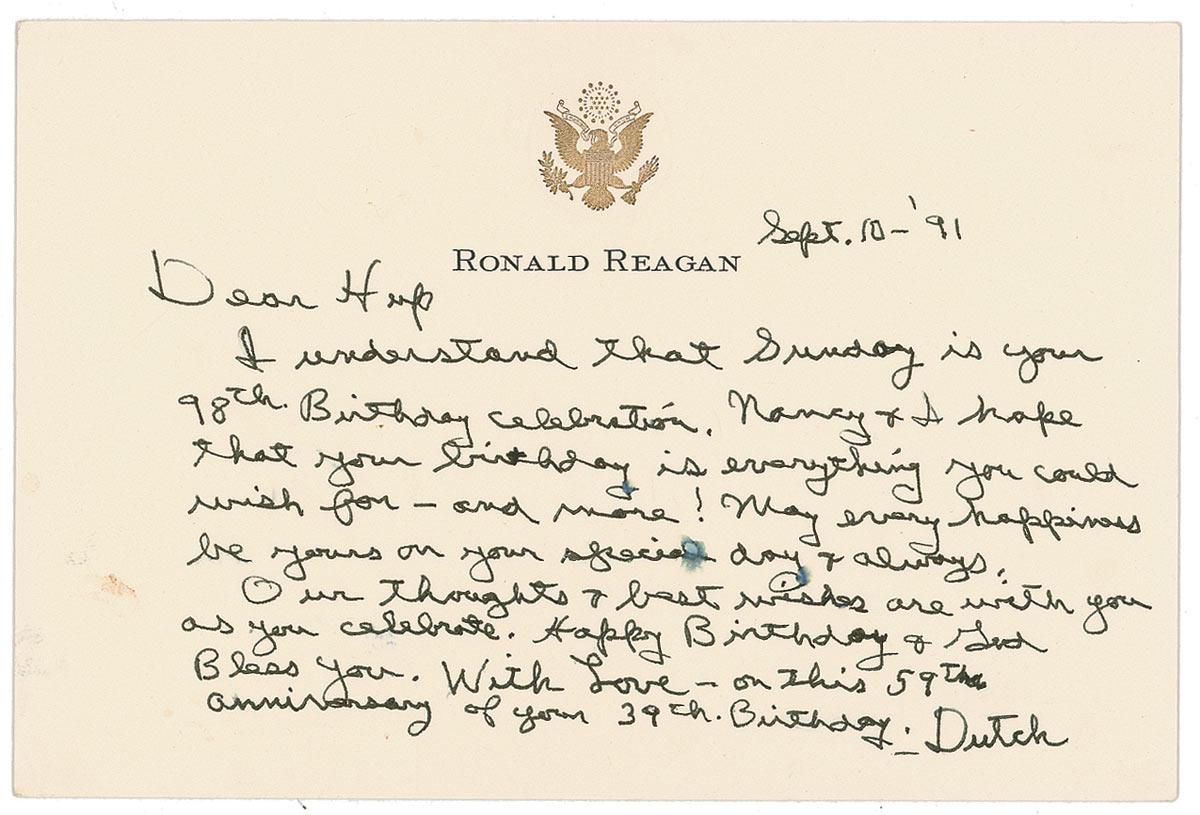 RONALD REAGAN
Sept. 10 - '91
Dear Hup
I understand that Sunday is your
98th. Birthday celebration. Nancy & I hope
that your birthday is everything you could
wish for - and more! May every happiness
be yours on your special day & always.
Our thoughts & best wishes are with you
as you celebrate. Happy Birthday & God
Bless You. With Love - on this 59th
anniversary of your 39th. Birthday. Dutch